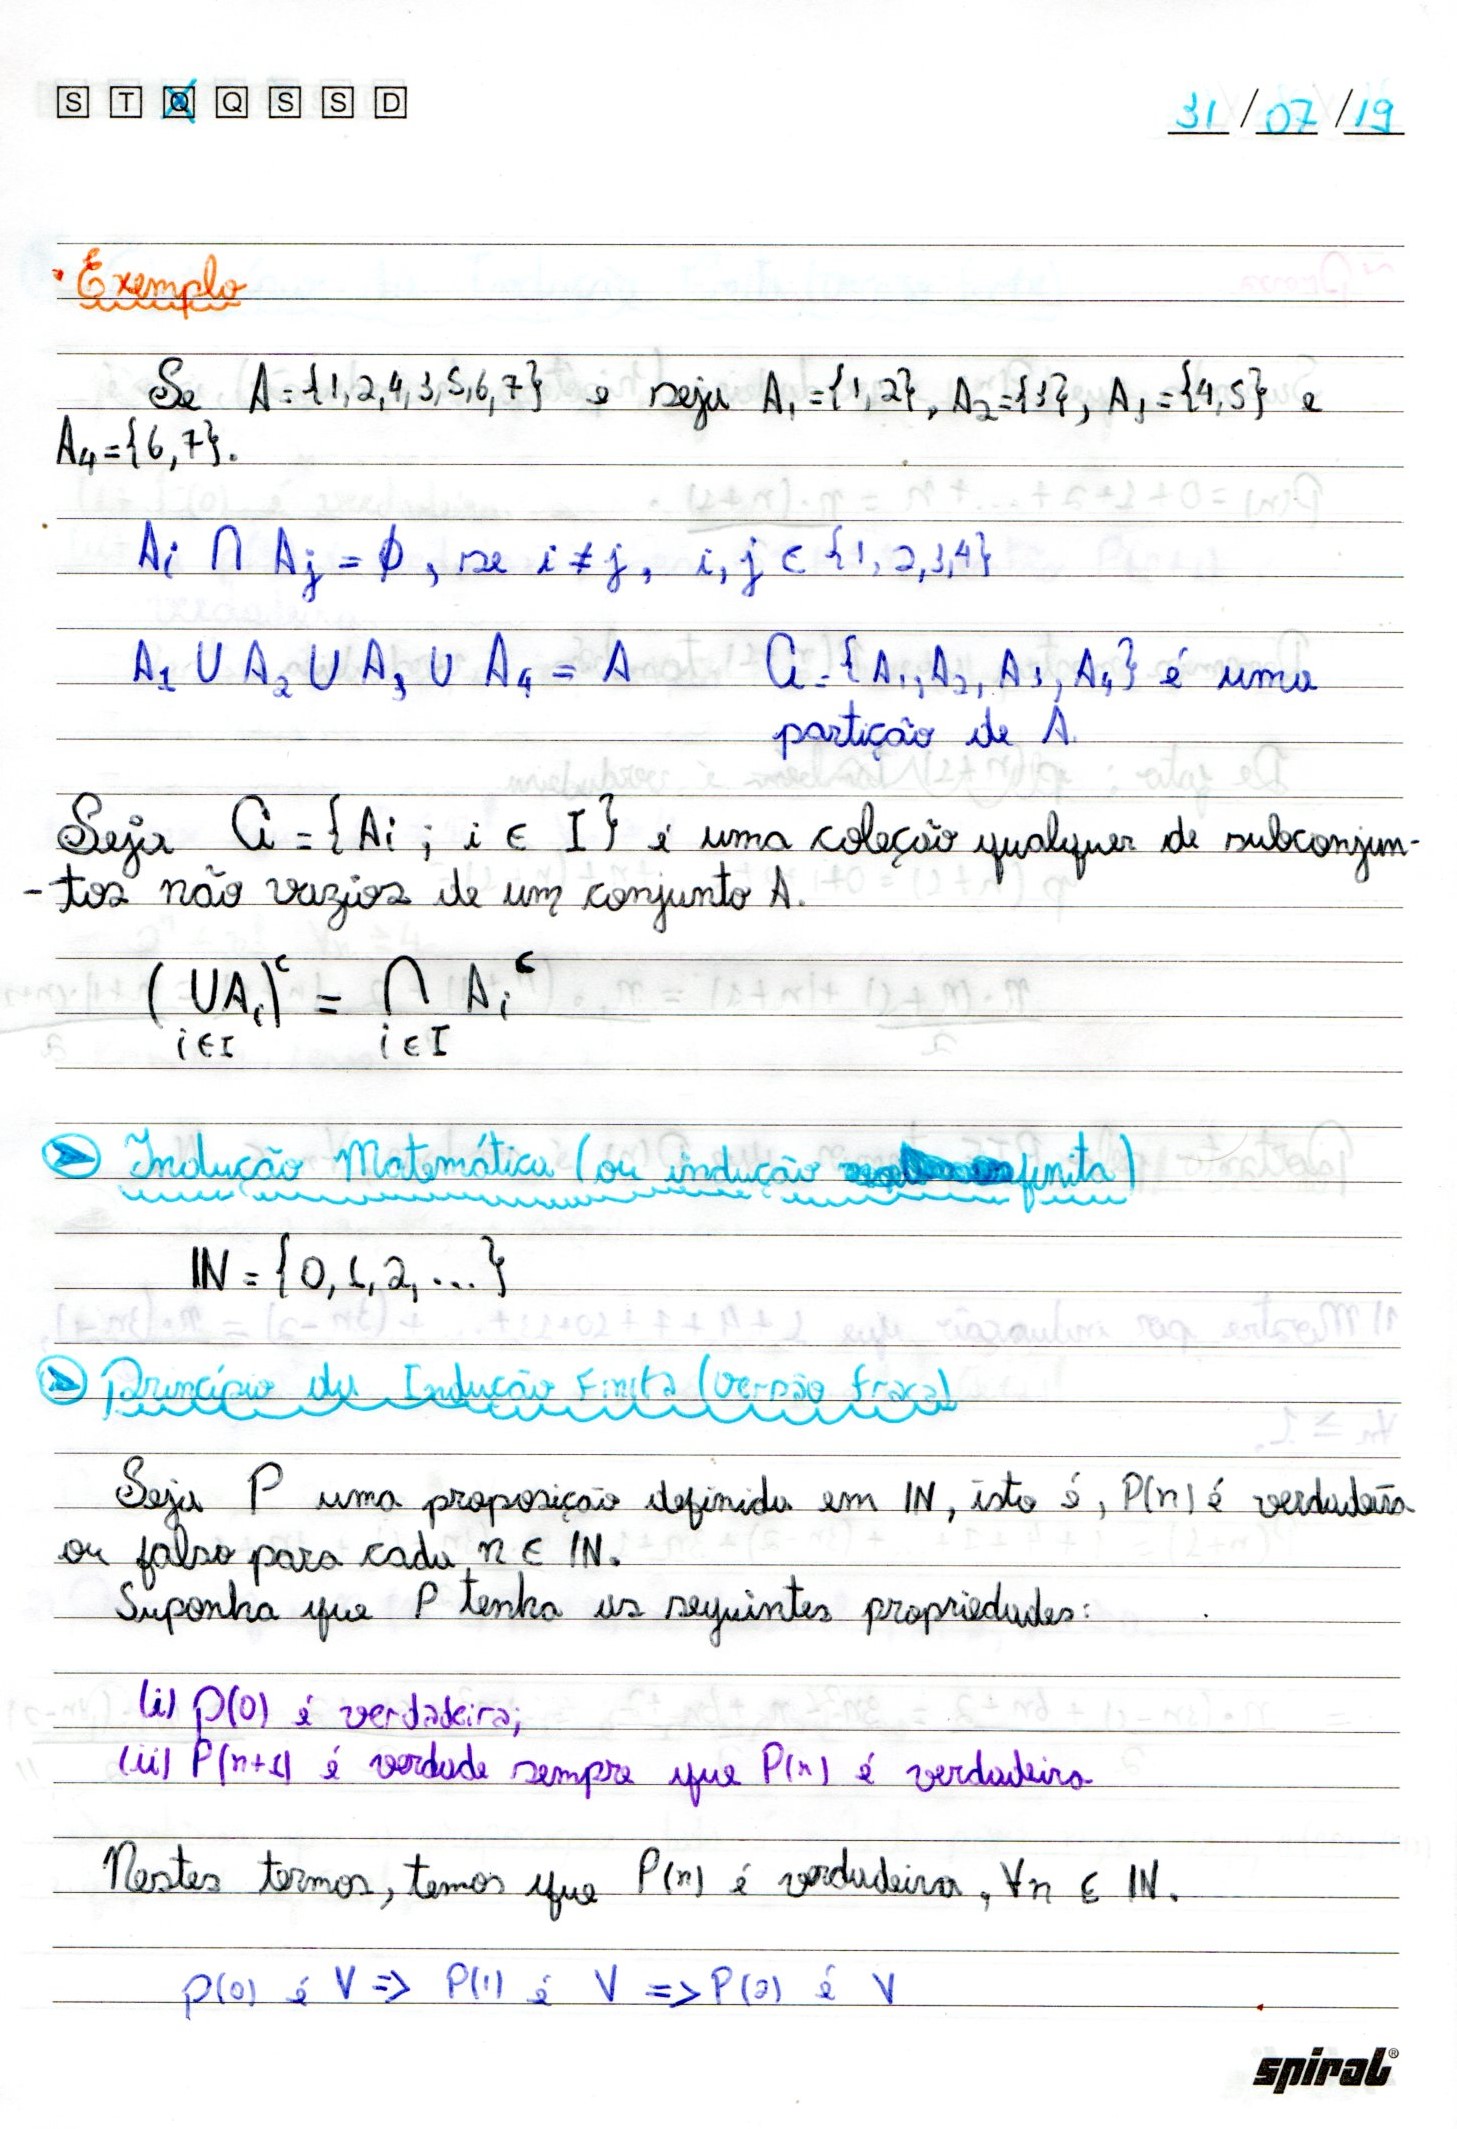 S T Q Q S S D 31/07/19
• Exemplo
Se A={1,2,4,3,5,6,7} e seja A₁={1,2}, A₂={3}, A₃={4,5} e
A₄={6,7}.
Ai ∩ Aj = ∅, se i ≠ j, i, j ∈ {1,2,3,4}
A₁ ∪ A₂ ∪ A₃ ∪ A₄ = A   𝒞 = {A₁, A₂, A₃, A₄} é uma
partição de A.
Seja 𝒞 = {Ai ; i ∈ I} é uma coleção qualquer de subconjun-
-tos não vazios de um conjunto A.
(∪Ai)ᶜ = ∩ Aiᶜ
i∈I i∈I
Indução Matemática (ou indução finita)
IN = {0, 1, 2, ...}
Princípio da Indução Finita (versão fraca)
Seja P uma proposição definida em IN, isto é, P(n) é verdadeira
ou falso para cada n ∈ IN.
Suponha que P tenha as seguintes propriedades:
(i) P(0) é verdadeira;
(ii) P(n+1) é verdade sempre que P(n) é verdadeira
Nestes termos, temos que P(n) é verdadeira, ∀n ∈ IN.
P(0) é V => P(1) é V => P(2) é V
spiral®